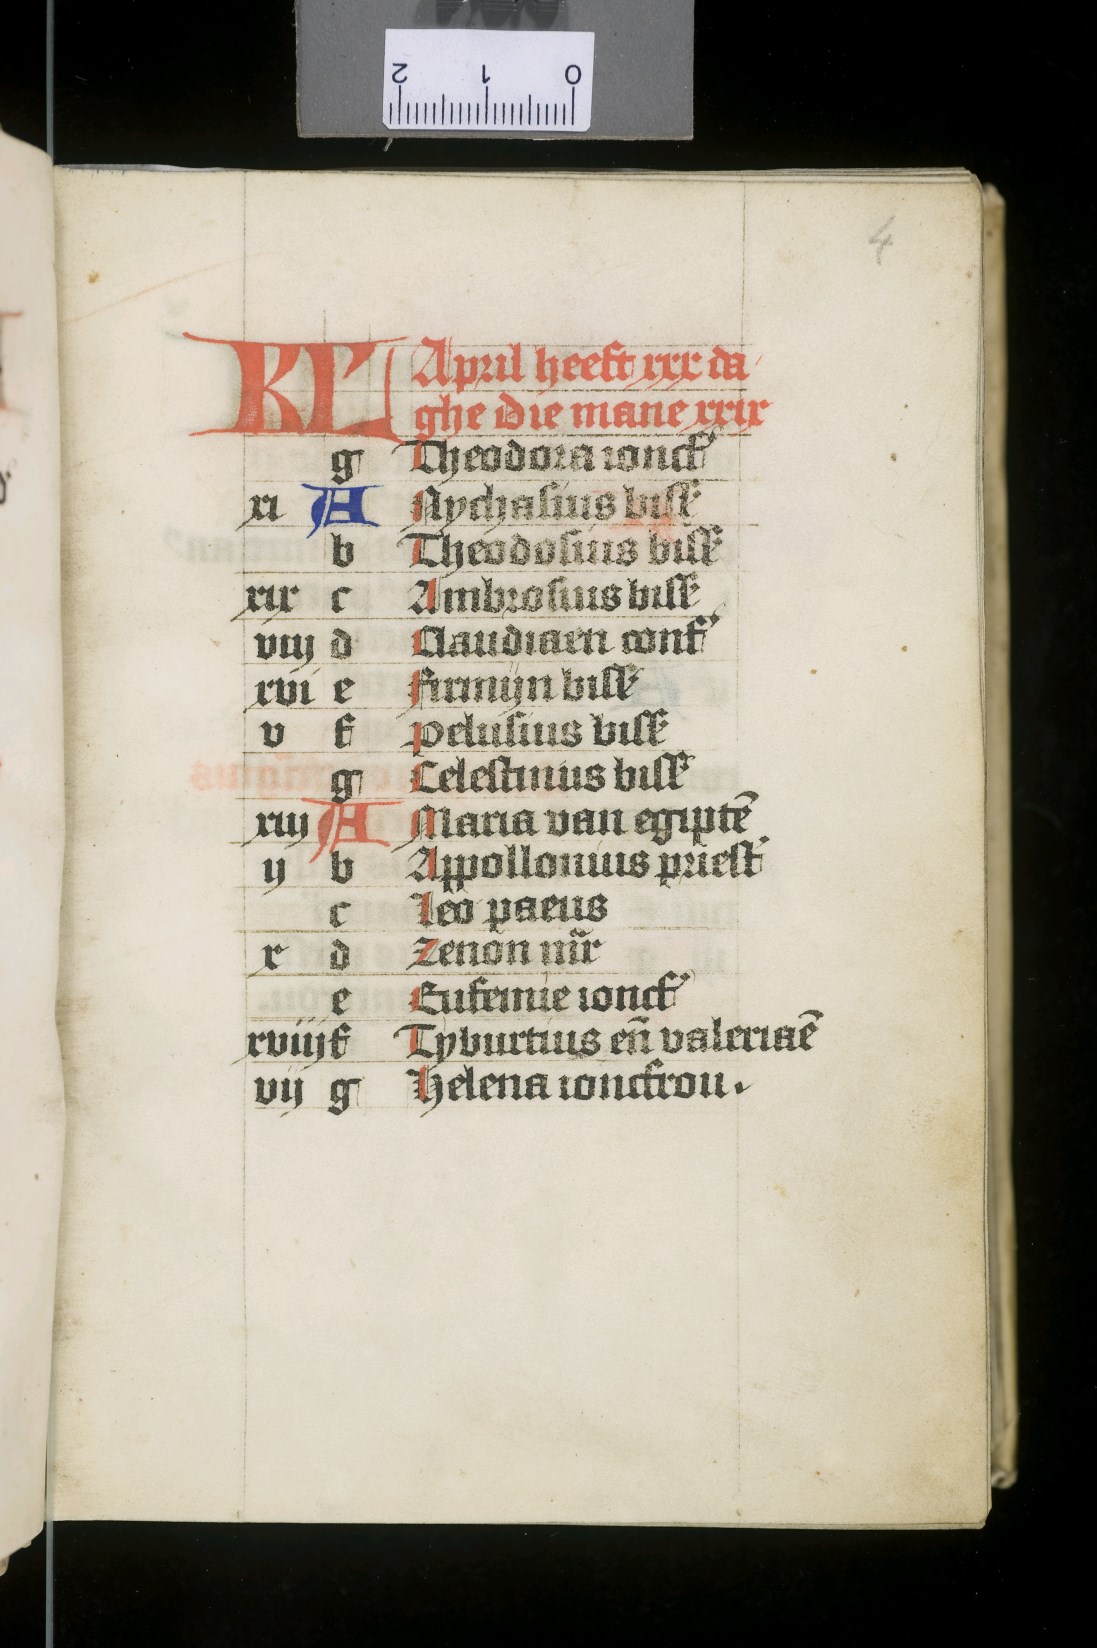 2 1 0
4
KL April heeft xxx da
ghe Die mane xxix
g Theodora ioncf'
xi A Nychasius bissc
b Theodosius bissc
xix c Ambrosius bissc
viij d Claudiaen conf'
xvi e Firmijn bissc
v f Pelusius bissc
g Celestinus bissc
xiij A Maria van egiptē
ij b Appollonius priest'
c Leo paeus
x d Zenon mr̃
e Eufemie ioncf'
xviij f Tyburtius eñ valeriaē
vij g Helena ioncfrou.